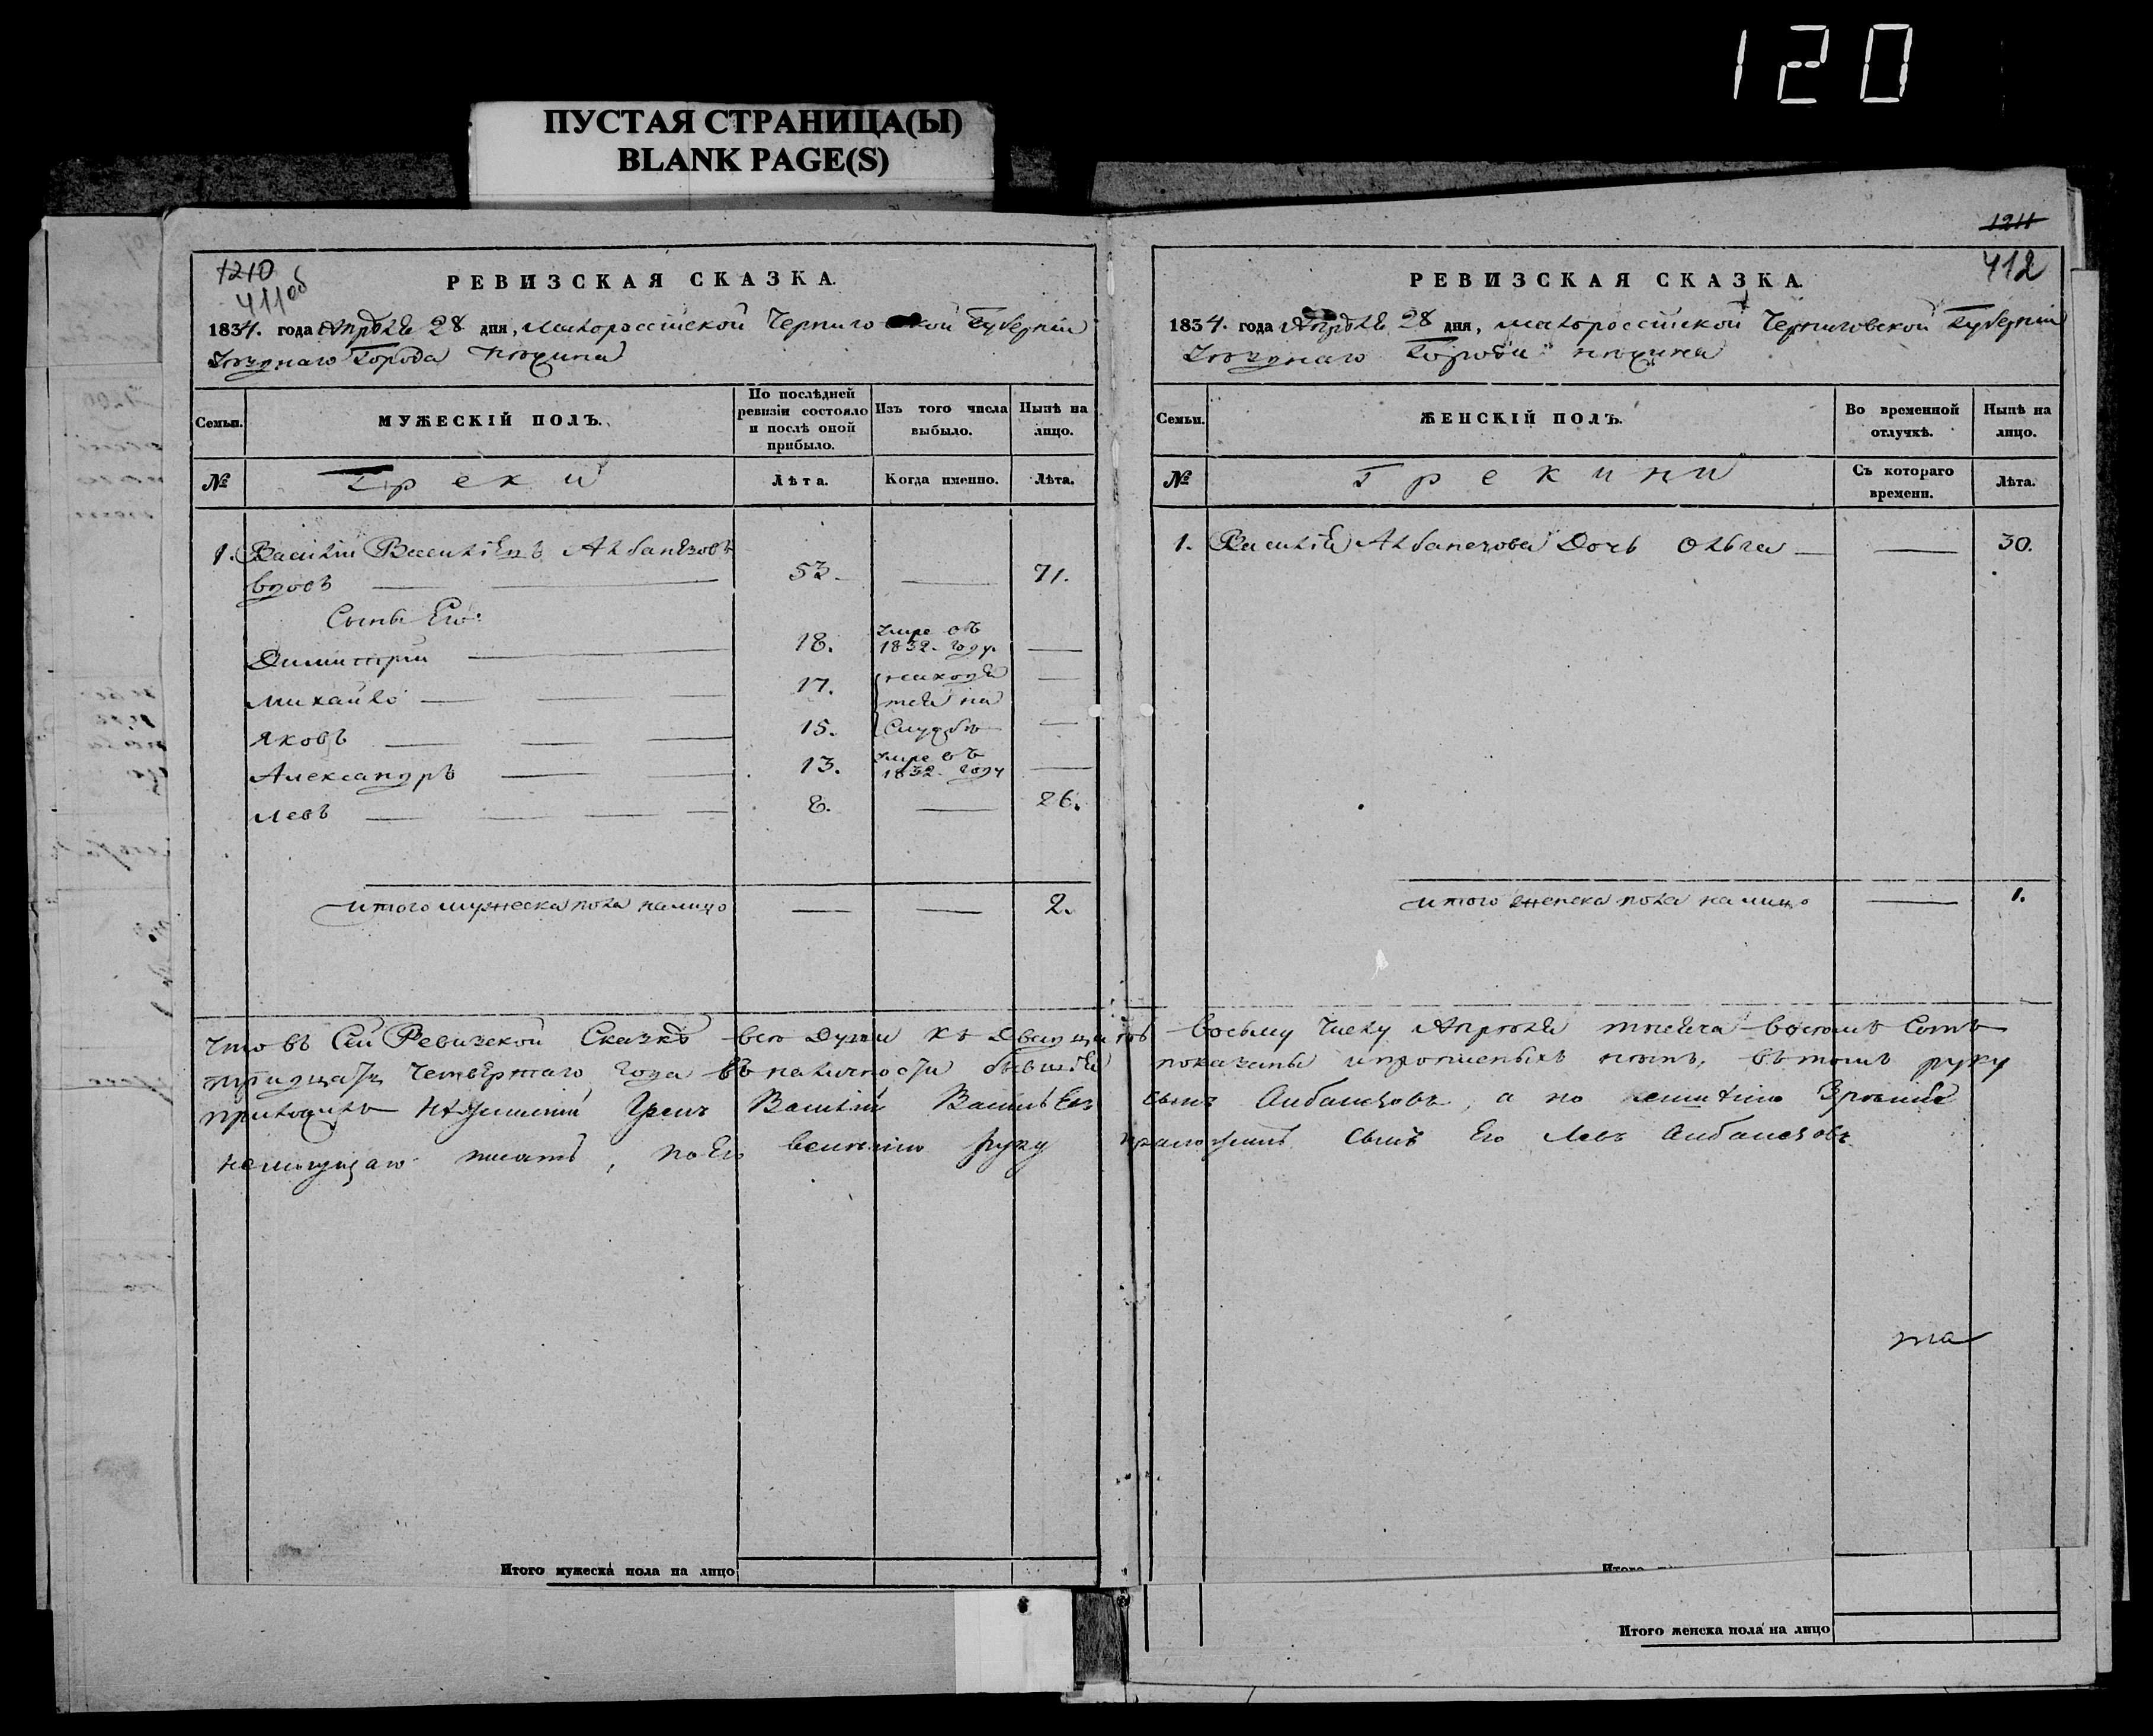 120
ПУСТАЯ СТРАНИЦА(Ы)
BLANK PAGE(S)
1210
411об
РЕВИЗСКАЯ СКАЗКА.
1834. года Апрѣля 28 дня, Малороссійской Черниговской Губерніи
Уѣзднаго Города Нѣжина
Семьи.
МУЖЕСКІЙ ПОЛЪ.
По послѣдней ревизіи состояло и послѣ оной прибыло.
Изъ того числа выбыло.
Нынѣ на лицо.
№
Греки
Лѣта.
Когда именно.
Лѣта.
1. Василій Васильевъ Албанезовъ
вдовъ 53. 71.
Сыны Его:
Димитрій 18. Умре въ 1832. году.
Михайло 17. находя
тся на
Яковъ 15. Службѣ
Александръ 13. Умре въ 1832. году
Левъ 8. 26.
Итого мужеска пола налицо 2.
1211
412
РЕВИЗСКАЯ СКАЗКА.
1834. года Апрѣля 28 дня, Малороссійской Черниговской Губерніи
Уѣзднаго Города Нѣжина
Семьи.
ЖЕНСКІЙ ПОЛЪ.
Во временной отлучкѣ.
Нынѣ на лицо.
№
Грекини
Съ котораго времени.
Лѣта.
1. Василія Албанезова Дочь Ольга 30.
Итого женска пола налицо 1.
Что въ Сей Ревизской Сказкѣ всѣ Души къ Двадцать восьму Числу Апрѣля мѣсяца восемъ Сотъ
тридцать Четвертаго года въ наличности бывшія показаны и прописныхъ нѣтъ, въ томъ руку
приложилъ Нѣжинскій Грекъ Василій Васильевъ сынъ Албанезовъ, а по
немогущаго писать, по Его велѣнію руку приложилъ Сынъ Его Левъ Албанезовъ
Итого мужеска пола на лицо
Итого
Итого женска пола на лицо